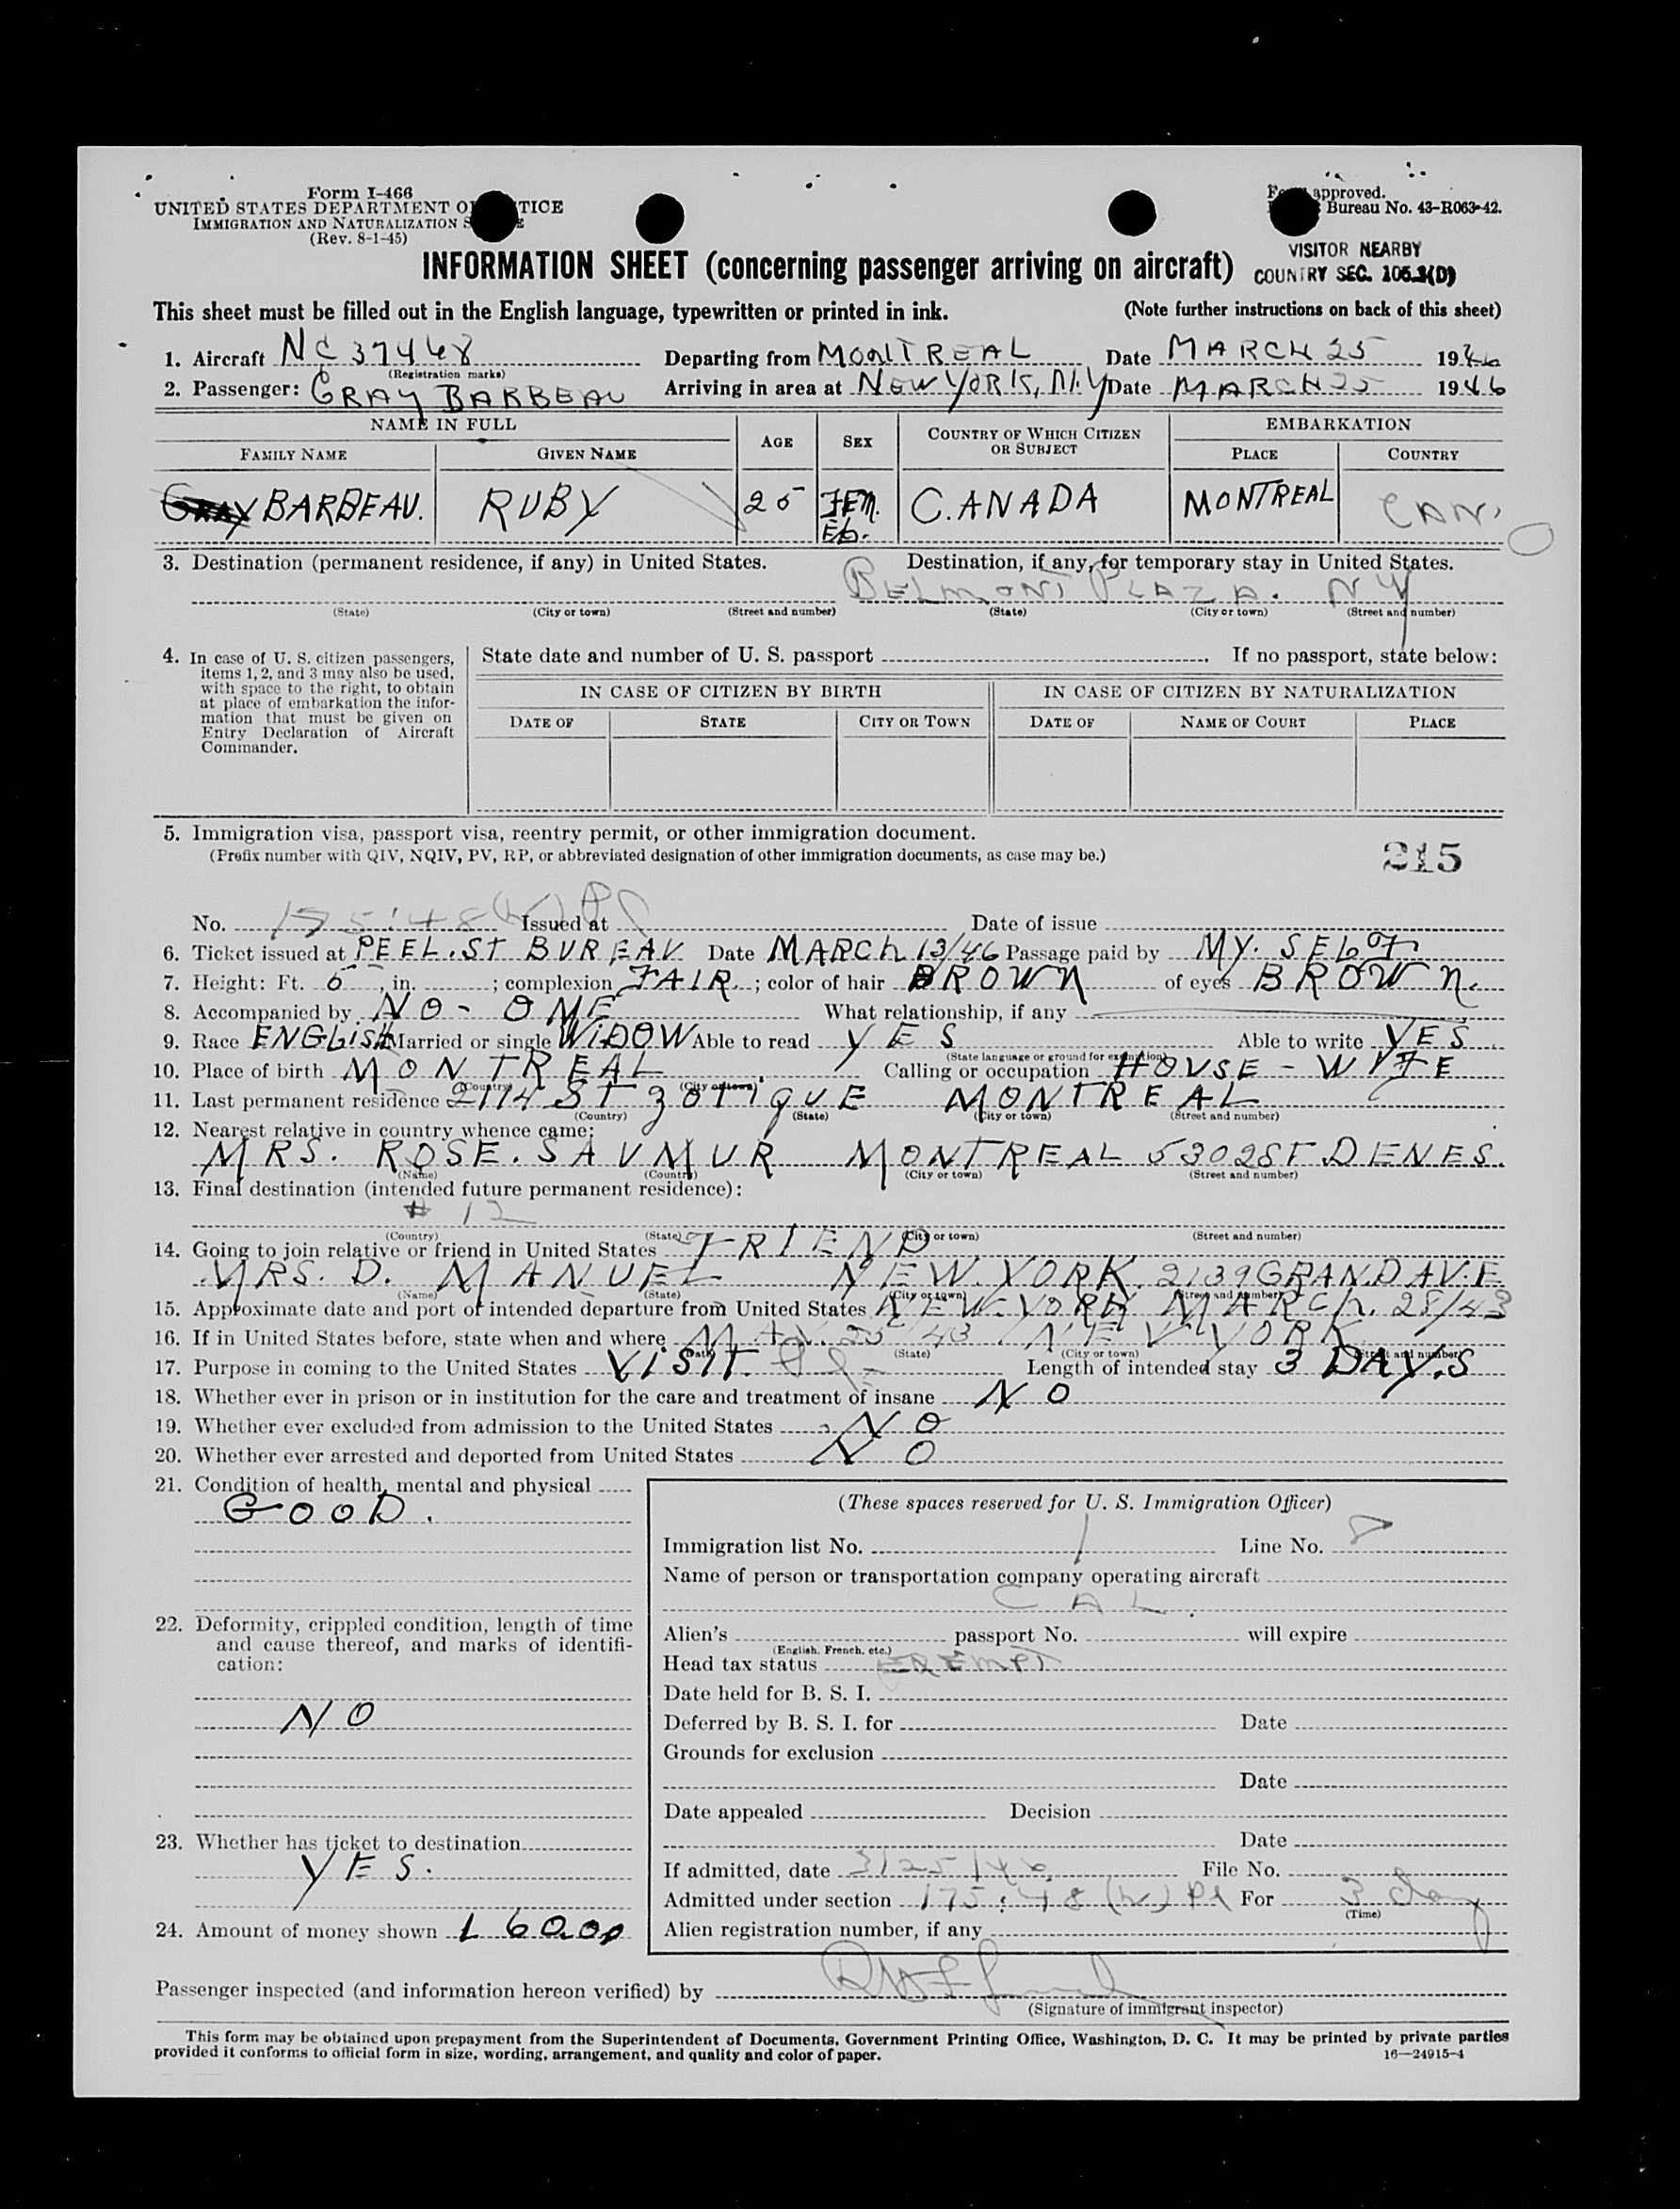 Form I-466
UNITED STATES DEPARTMENT O TICE
IMMIGRATION AND NATURALIZATION S E
(Rev. 8-1-45)
approved.
Bureau No. 43-R063-42.
VISITOR NEARBY
COUNTRY SEC. 105.3(D)
INFORMATION SHEET (concerning passenger arriving on aircraft)
This sheet must be filled out in the English language, typewritten or printed in ink. (Note further instructions on back of this sheet)
1. Aircraft NC 37468 Departing from MONTREAL Date MARCH 25 1946
(Registration marks)
2. Passenger: GRAY BARBEAU Arriving in area at NEW YORK, N.Y Date MARCH 25 1946
NAME IN FULL AGE SEX COUNTRY OF WHICH CITIZEN OR SUBJECT EMBARKATION
FAMILY NAME GIVEN NAME PLACE COUNTRY
GRAY BARBEAU. RUBY 25 FEM. CANADA MONTREAL CAN.
3. Destination (permanent residence, if any) in United States. Destination, if any, for temporary stay in United States.
BELMONT PLAZA. NY
(State) (City or town) (Street and number) (State) (City or town) (Street and number)
4. In case of U. S. citizen passengers, items 1, 2, and 3 may also be used, with space to the right, to obtain at place of embarkation the information that must be given on Entry Declaration of Aircraft Commander.
State date and number of U. S. passport . If no passport, state below:
IN CASE OF CITIZEN BY BIRTH IN CASE OF CITIZEN BY NATURALIZATION
DATE OF STATE CITY OR TOWN DATE OF NAME OF COURT PLACE
5. Immigration visa, passport visa, reentry permit, or other immigration document.
(Prefix number with QIV, NQIV, PV, RP, or abbreviated designation of other immigration documents, as case may be.)
215
No. 175:48 Issued at Date of issue
6. Ticket issued at PEEL.ST BUREAU Date MARCH 13/46 Passage paid by MY. SELF
7. Height: Ft. 5, in. ; complexion FAIR. ; color of hair BROWN of eyes BROWN.
8. Accompanied by NO-ONE What relationship, if any
9. Race ENGLISH Married or single WIDOW Able to read YES Able to write YES
(State language or ground for exemption)
10. Place of birth MONTREAL Calling or occupation HOUSE-WIFE
(Country) (City or town)
11. Last permanent residence 2114 ST ZOTIQUE MONTREAL
(Country) (State) (City or town) (Street and number)
12. Nearest relative in country whence came:
MRS. ROSE. SAUMUR MONTREAL 5302 ST DENES.
(Name) (Country) (City or town) (Street and number)
13. Final destination (intended future permanent residence):
# 12
(Country) (State) (City or town) (Street and number)
14. Going to join relative or friend in United States FRIEND
MRS. D. MANUEL NEW.YORK. 2139 GRAND AV.E
(Name) (State) (City or town) (Street and number)
15. Approximate date and port of intended departure from United States NEW.YORK MARCH. 28/43
16. If in United States before, state when and where MAY. /43 NEW YORK
(Date) (State) (City or town) (Street and number)
17. Purpose in coming to the United States VISIT. Length of intended stay 3 DAY.S
18. Whether ever in prison or in institution for the care and treatment of insane NO
19. Whether ever excluded from admission to the United States NO
20. Whether ever arrested and deported from United States NO
21. Condition of health, mental and physical
GOOD.
22. Deformity, crippled condition, length of time and cause thereof, and marks of identification:
NO
23. Whether has ticket to destination
YES.
24. Amount of money shown 60.00
(These spaces reserved for U. S. Immigration Officer)
Immigration list No. 1 Line No.
Name of person or transportation company operating aircraft
CAL.
Alien's passport No. will expire
(English, French, etc.)
Head tax status EXEMPT
Date held for B. S. I.
Deferred by B. S. I. for Date
Grounds for exclusion
Date
Date appealed Decision
Date
If admitted, date 3/25/46 File No.
Admitted under section 175:48 For 3 day
(Time)
Alien registration number, if any
Passenger inspected (and information hereon verified) by
(Signature of immigrant inspector)
This form may be obtained upon prepayment from the Superintendent of Documents, Government Printing Office, Washington, D. C. It may be printed by private parties
provided it conforms to official form in size, wording, arrangement, and quality and color of paper. 16—24915-4